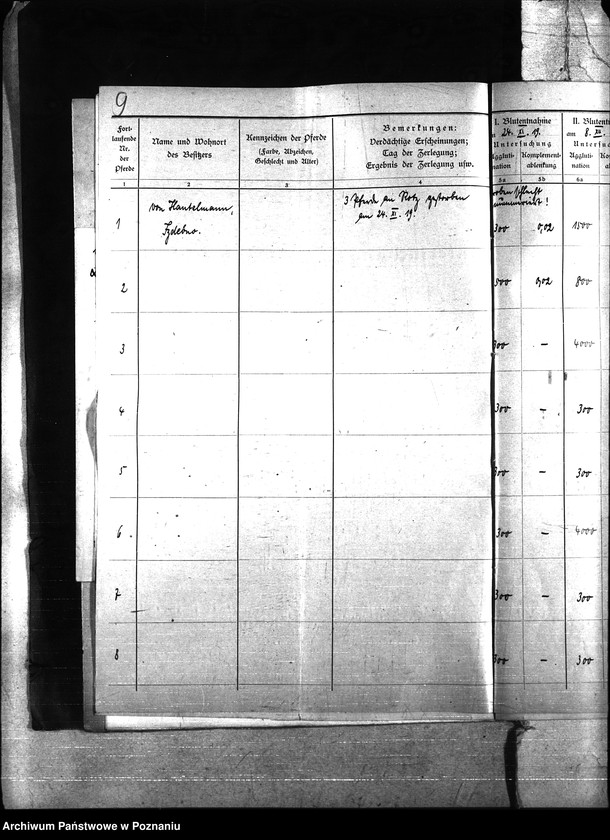 9
Fort-
laufende
Nr.
der
Pferde
Name und Wohnort
des Besitzers
Kennzeichen der Pferde
(Farbe, Abzeichen,
Geschlecht und Alter)
Bemerkungen:
Verdächtige Erscheinungen;
Tag der Zerlegung;
Ergebnis der Zerlegung usw.
I. Blutentnahme
24. XI. 19.
Untersuchung
Aggluti-
nation
Komplement-
ablenkung
II. Blutent
am 8. XII.
Untersuc
Aggluti-
nation
Ko
a
1 2 3 4 5a 5b 6a
1 von Hantelmann, 3 Pferde an Rotz gestorben
am 24. XI. 19.
300 0,02 1500
2 500 0,02 800
3 300 – 4000
4 300 – 300
5 300 – 300
6. 300 – 4000
7 300 – 300
8 300 – 300
Archiwum Państwowe w Poznaniu